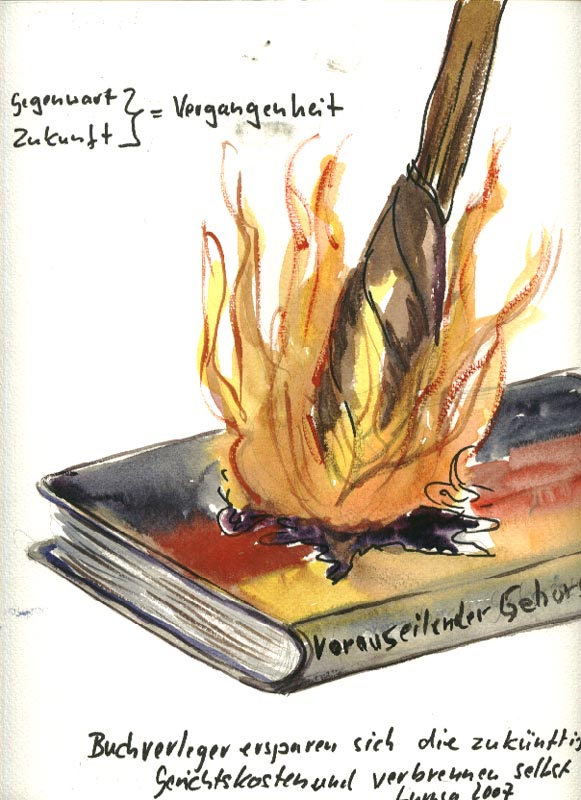 Gegenwart
Zukunft } = Vergangenheit
Vorauseilender Gehor
Buchverleger ersparen sich die zukünftig
Gerichtskosten und verbrennen selbst
2007